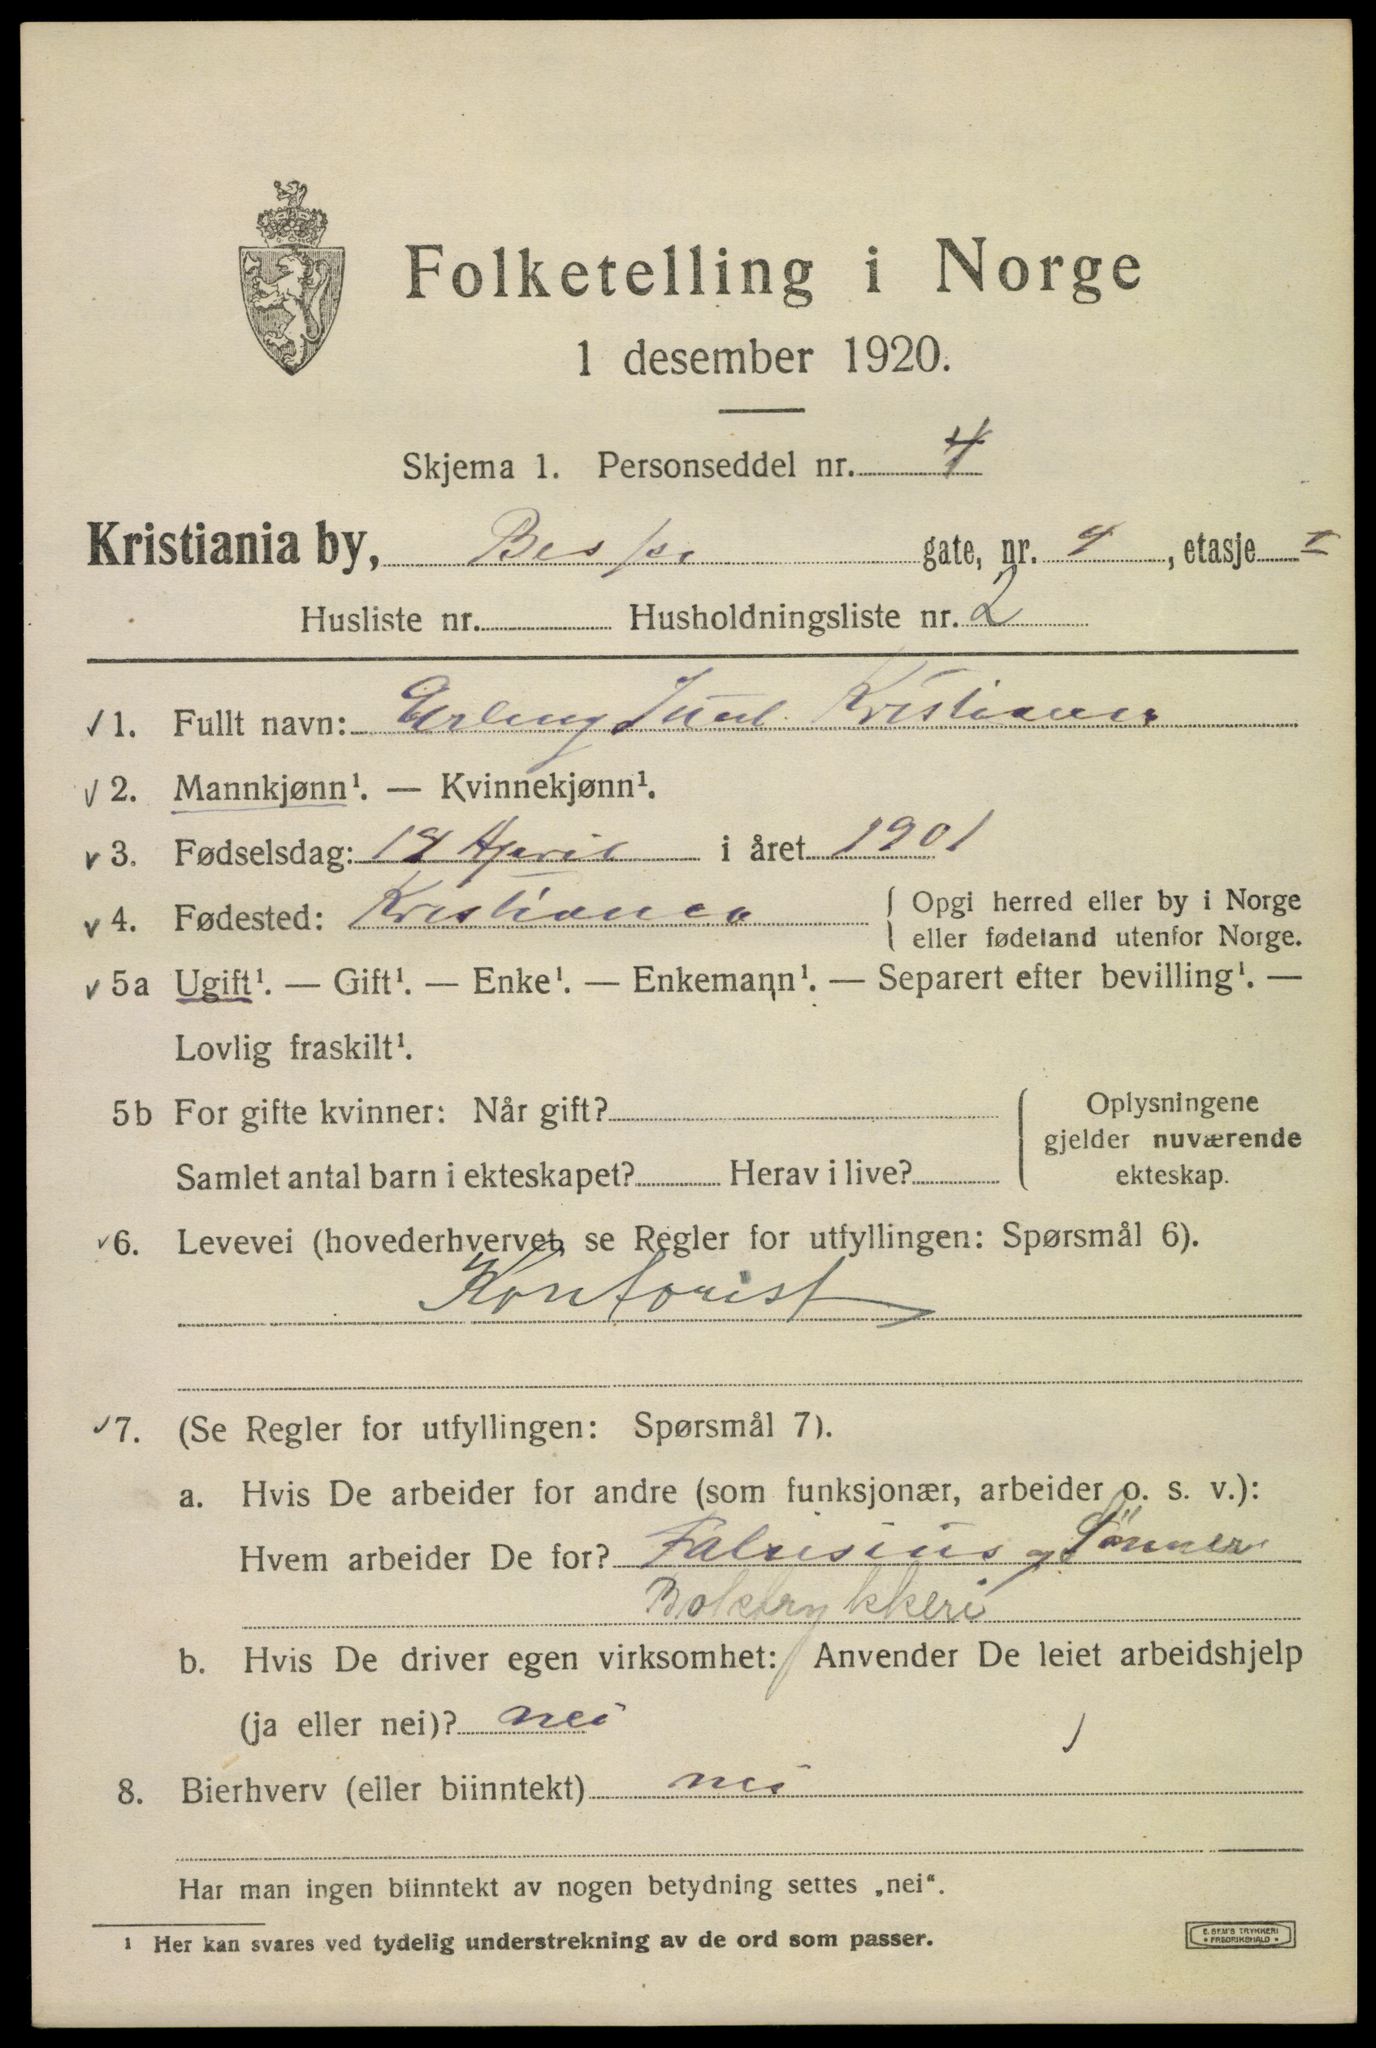 Folketelling i Norge
1 desember 1920.
Skjema 1. Personseddel nr. 4
Kristiania by, gate, nr. 4, etasje I
Husliste nr. Husholdningsliste nr. 2
√ 1. Fullt navn: Erling Juul Kristiansen
√ 2. Mannkjønn¹. — Kvinnekjønn¹.
v 3. Fødselsdag: April i året 1901
v 4. Fødested: Kristiania
Opgi herred eller by i Norge
eller fødeland utenfor Norge.
v 5a Ugift¹. — Gift¹. — Enke¹. — Enkemann¹. — Separert efter bevilling¹. —
Lovlig fraskilt¹.
5b For gifte kvinner: Når gift?
Samlet antal barn i ekteskapet? Herav i live?
Oplysningene
gjelder nuværende
ekteskap.
v 6. Levevei (hovederhvervet, se Regler for utfyllingen: Spørsmål 6).
Kontorist
✓ 7. (Se Regler for utfyllingen: Spørsmål 7).
a. Hvis De arbeider for andre (som funksjonær, arbeider o. s. v.):
Hvem arbeider De for? Fabrisius og Sönner
Boktrykkeri
b. Hvis De driver egen virksomhet: Anvender De leiet arbeidshjelp
(ja eller nei)? nei
8. Bierhverv (eller biinntekt) nei
Har man ingen biinntekt av nogen betydning settes „nei“.
¹ Her kan svares ved tydelig understrekning av de ord som passer.
E. SEM'S TRYKKERI
• FREDRIKSHALD •